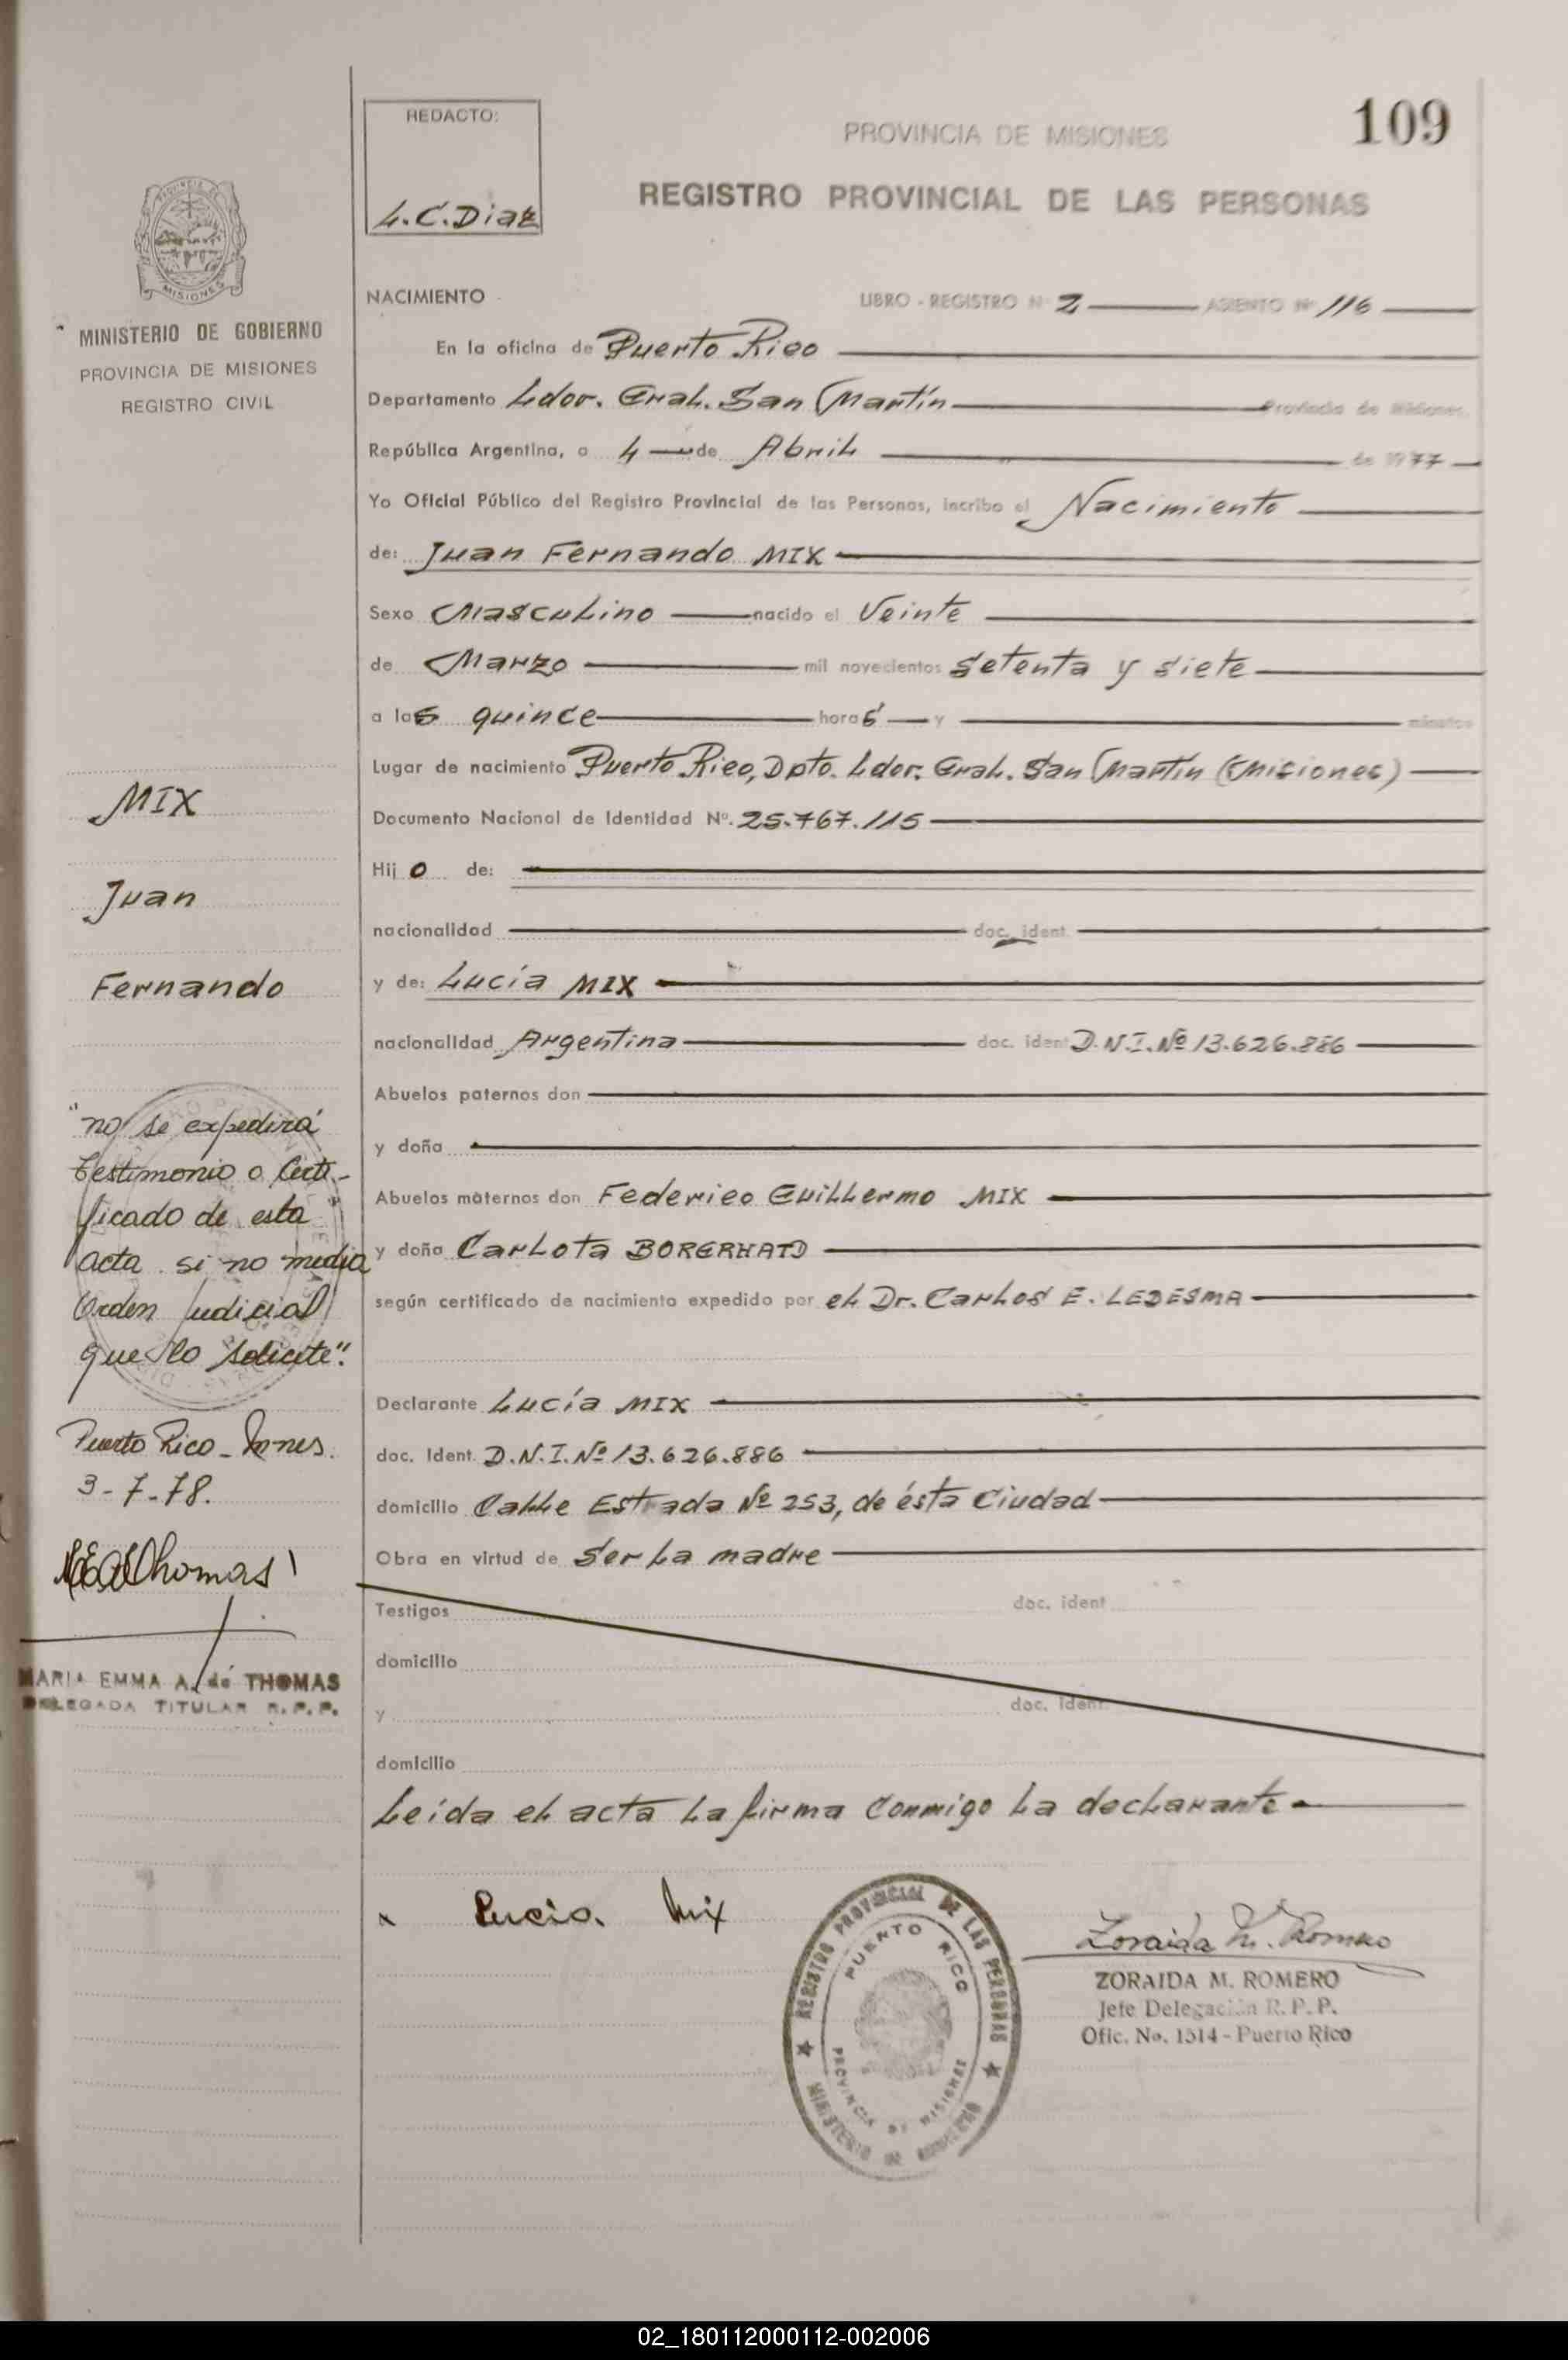 109
REDACTO:
L.C.Diaz
PROVINCIA DE MISIONES
REGISTRO PROVINCIAL DE LAS PERSONAS
MISIONES
MINISTERIO DE GOBIERNO
PROVINCIA DE MISIONES
REGISTRO CIVIL
NACIMIENTO LIBRO - REGISTRO Nº 2 ASIENTO Nº 116
En la oficina de Puerto Rico
Departamento Ldor. Gral. San Martín Provincia de Misiones,
República Argentina, a 4 de Abril de 1977
Yo Oficial Público del Registro Provincial de las Personas, incribo el Nacimiento
de: Juan Fernando MIX
Sexo Masculino nacido el Veinte
de Marzo mil novecientos setenta y siete
a las quince horas y minutos
Lugar de nacimiento Puerto Rico, Dpto. Ldor. Gral. San Martín (Misiones)
Documento Nacional de Identidad Nº. 25.767.115
Hijo de:
nacionalidad doc. ident.
y de: Lucía MIX
nacionalidad Argentina doc. ident D.N.I. Nº 13.626.886
Abuelos paternos don
y doña
Abuelos maternos don Federico Guillermo MIX
y doña Carlota
según certificado de nacimiento expedido por el Dr. Carlos E. LEDESMA
Declarante Lucía MIX
doc. Ident. D.N.I. Nº 13.626.886
domicilio Calle Estrada Nº 253, de ésta Ciudad
Obra en virtud de ser la madre
Testigos doc. ident
domicilio
y doc. ident.
domicilio
Leída el acta la firma conmigo la declarante
Lucia. Mix
REGISTRO PROVINCIAL DE LAS PERSONAS
PUERTO RICO
PROVINCIA DE MISIONES
MINISTERIO DE GOBIERNO
Zoraida M. Romero
ZORAIDA M. ROMERO
Jefe Delegación R. P. P.
Ofic. No. 1314 - Puerto Rico
MIX
Juan
Fernando
"no se expedirá
testimonio o Certi-
ficado de esta
acta si no media
Orden Judicial
que lo solicite".
Puerto Rico - Mnes.
3-7-78.
MARIA EMMA A. de THOMAS
DELEGADA TITULAR R.P.P.
02_180112000112-002006